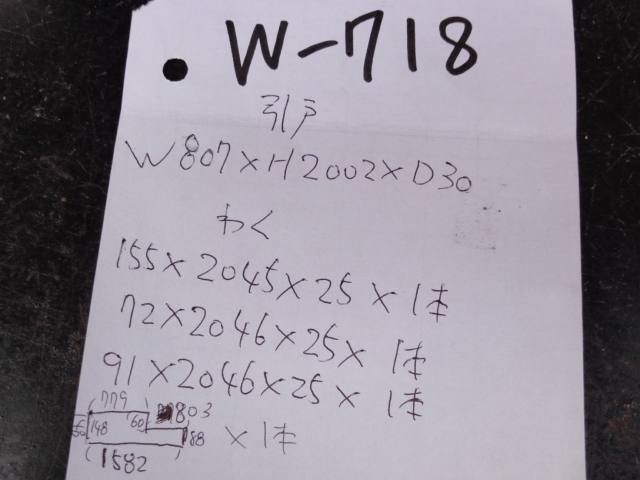 W-718
引戸
W807×H2002×D30
わく
155×2045×25×1本
72×2046×25×1本
91×2046×25×1本
779
803
148 60
88 ×1本
1582